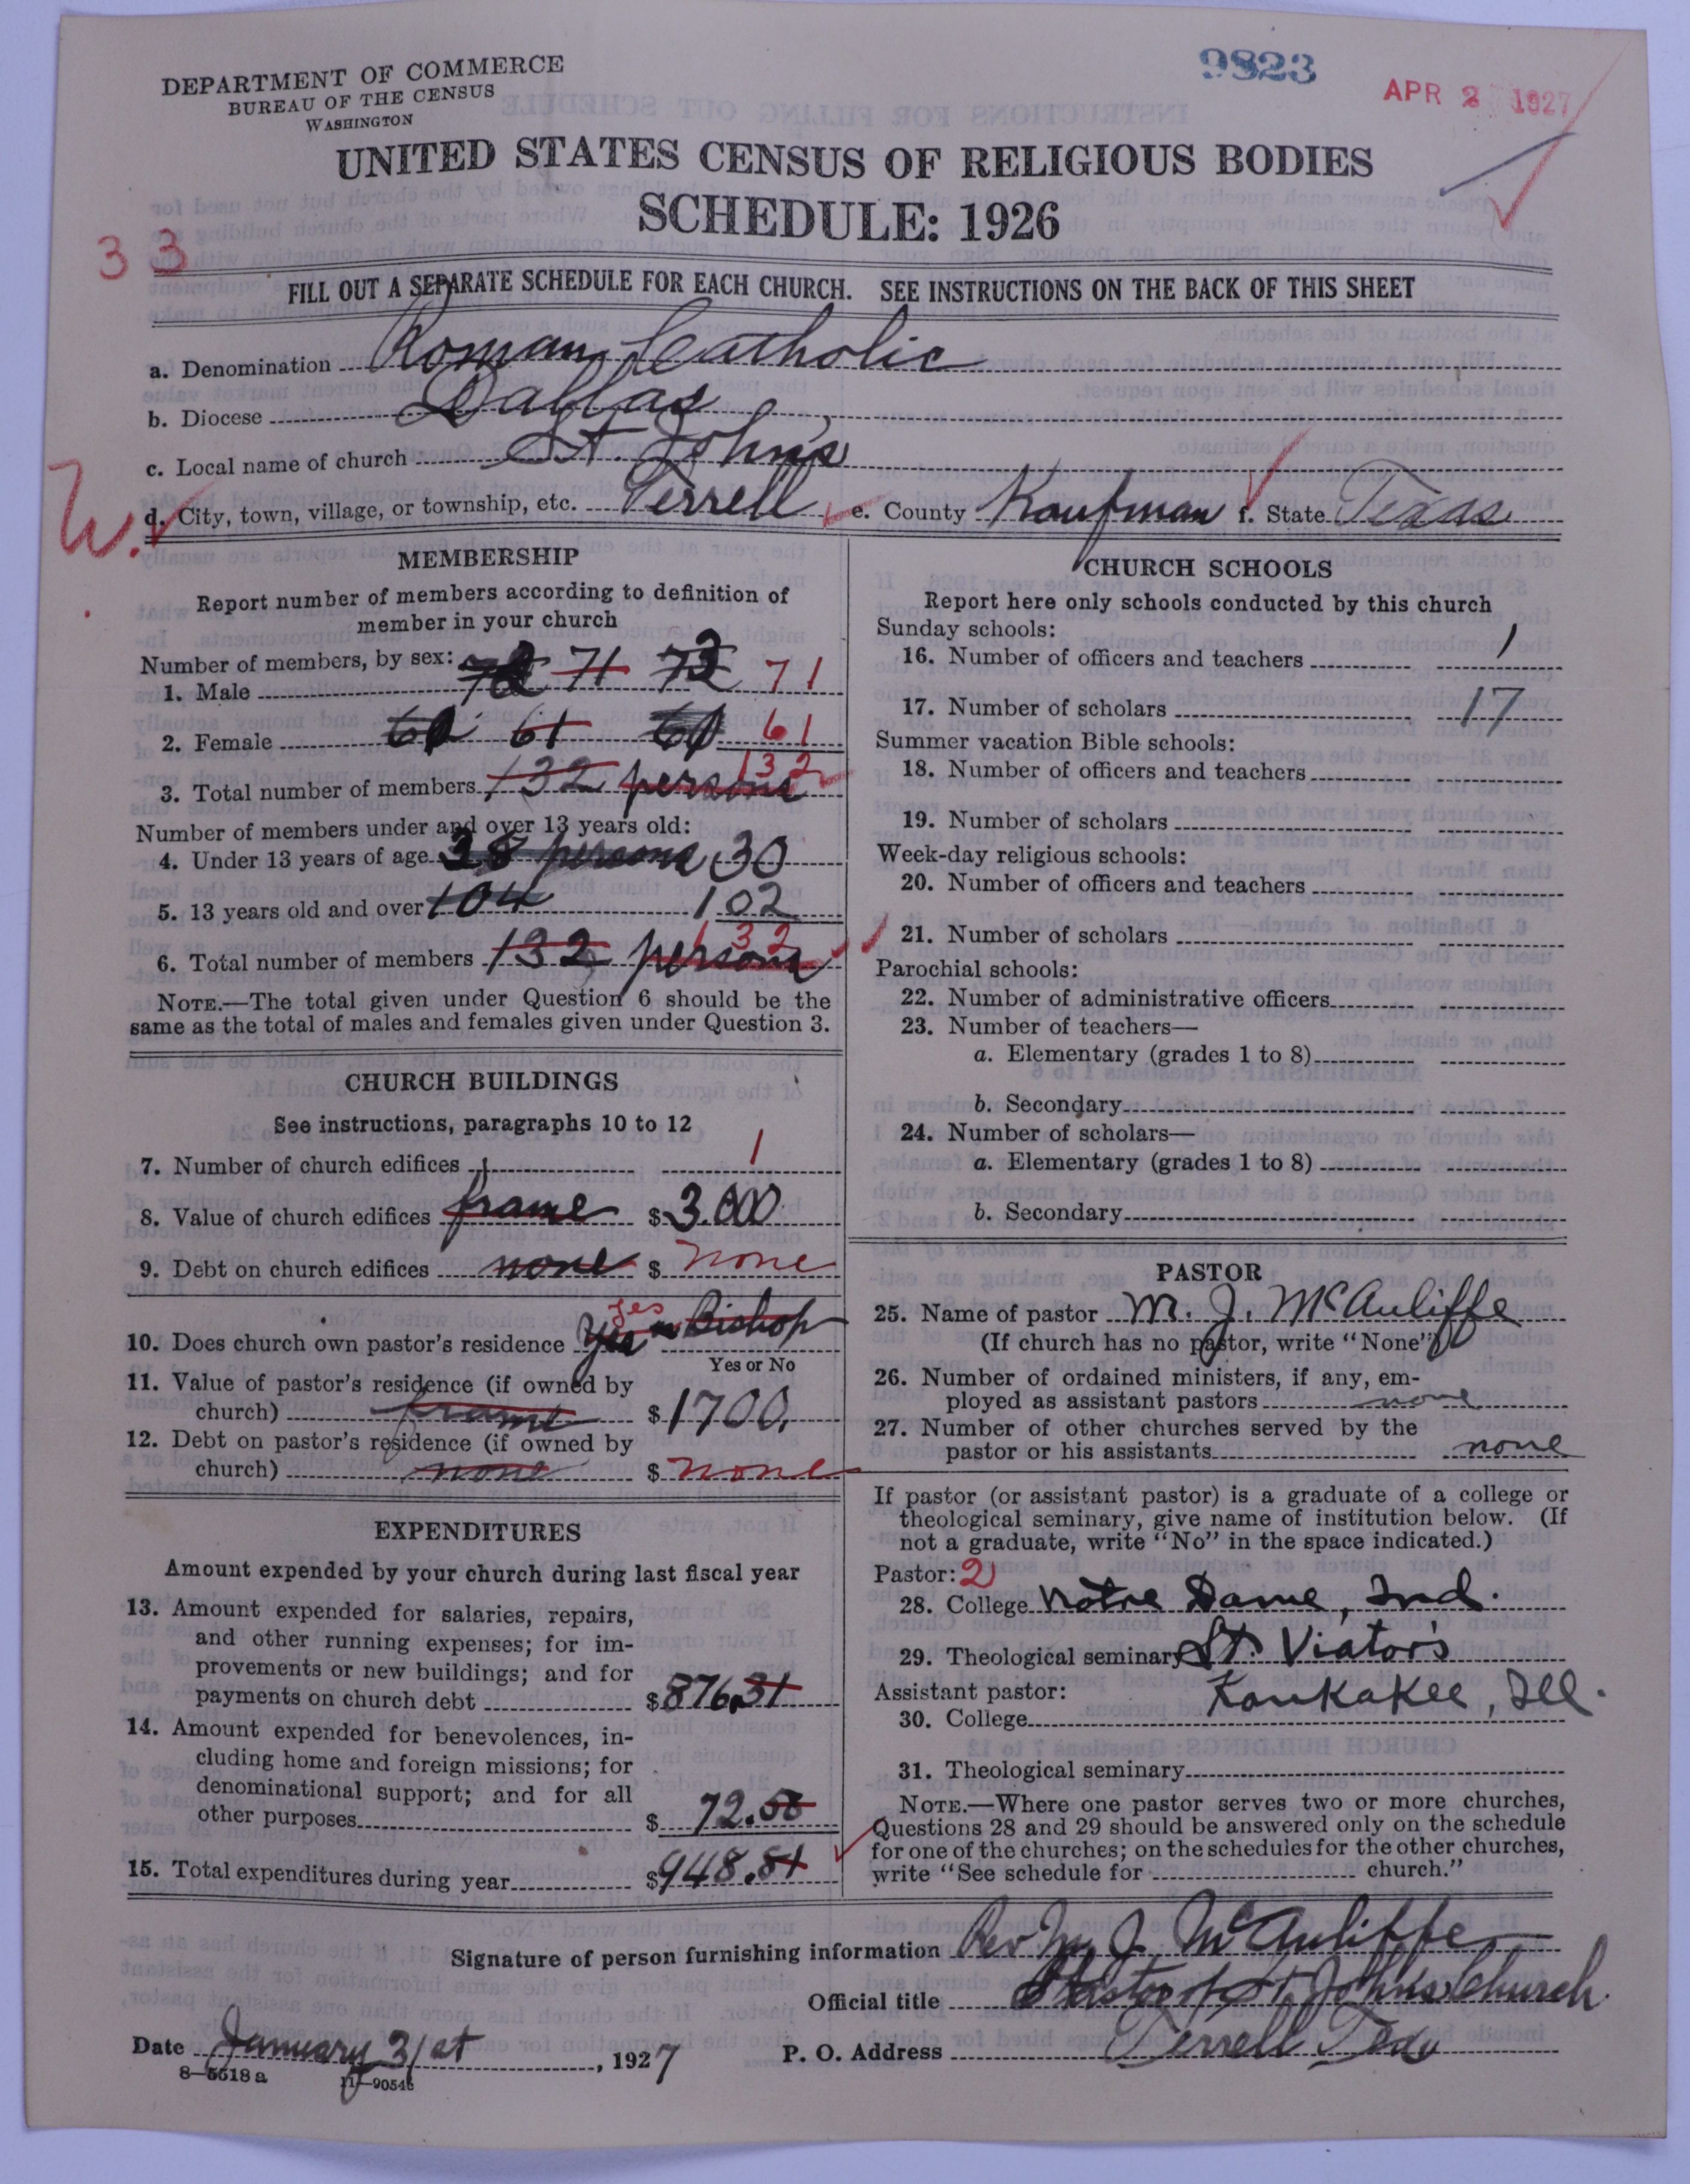 DEPARTMENT OF COMMERCE
BUREAU OF THE CENSUS
WASHINGTON
9823
APR 2 1927
UNITED STATES CENSUS OF RELIGIOUS BODIES
SCHEDULE: 1926
33
FILL OUT A SEPARATE SCHEDULE FOR EACH CHURCH. SEE INSTRUCTIONS ON THE BACK OF THIS SHEET
a. Denomination Roman Catholic
b. Diocese Dallas
c. Local name of church St. John's
W.
d. City, town, village, or township, etc. Terrell e. County Kaufman f. State Texas
MEMBERSHIP
Report number of members according to definition of
member in your church
Number of members, by sex:
1. Male 71 71
2. Female 61 61
3. Total number of members 132 persons 132
Number of members under and over 13 years old:
4. Under 13 years of age persons 30
5. 13 years old and over 104 102
6. Total number of members 132 persons 132
NOTE.—The total given under Question 6 should be the
same as the total of males and females given under Question 3.
CHURCH BUILDINGS
See instructions, paragraphs 10 to 12
7. Number of church edifices 1 1
8. Value of church edifices frame $ 3.000
9. Debt on church edifices none $ none
10. Does church own pastor's residence Yes yes Bishop
Yes or No
11. Value of pastor's residence (if owned by
church) frame $ 1700.
12. Debt on pastor's residence (if owned by
church) none $ none
EXPENDITURES
Amount expended by your church during last fiscal year
13. Amount expended for salaries, repairs,
and other running expenses; for im-
provements or new buildings; and for
payments on church debt $ 876.31
14. Amount expended for benevolences, in-
cluding home and foreign missions; for
denominational support; and for all
other purposes $ 72.50
15. Total expenditures during year $ 948.81
CHURCH SCHOOLS
Report here only schools conducted by this church
Sunday schools:
16. Number of officers and teachers 1
17. Number of scholars 17
Summer vacation Bible schools:
18. Number of officers and teachers
19. Number of scholars
Week-day religious schools:
20. Number of officers and teachers
21. Number of scholars
Parochial schools:
22. Number of administrative officers
23. Number of teachers—
a. Elementary (grades 1 to 8)
b. Secondary
24. Number of scholars—
a. Elementary (grades 1 to 8)
b. Secondary
PASTOR
25. Name of pastor M. J. McAuliffe
(If church has no pastor, write "None")
26. Number of ordained ministers, if any, em-
ployed as assistant pastors none
27. Number of other churches served by the
pastor or his assistants none
If pastor (or assistant pastor) is a graduate of a college or
theological seminary, give name of institution below. (If
not a graduate, write "No" in the space indicated.)
Pastor: 2
28. College Notre Dame, Ind.
29. Theological seminary St. Viator's
Assistant pastor: Kankakee, Ill.
30. College
31. Theological seminary
NOTE.—Where one pastor serves two or more churches,
Questions 28 and 29 should be answered only on the schedule
for one of the churches; on the schedules for the other churches,
write "See schedule for church."
Signature of person furnishing information Rev M. J. McAuliffe
Official title Pastor of St. John's Church
Date January 31st, 1927 P. O. Address Terrell Tex
8—5618a 11—90546